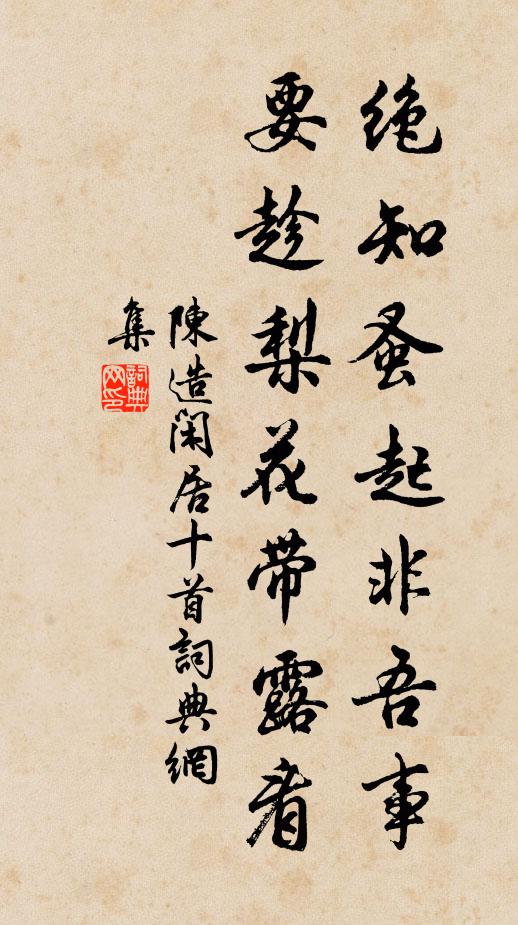 絶知蚤起非吾事
要趁梨花带露看
陳造閑居十首詞典網
集
詞典
网印